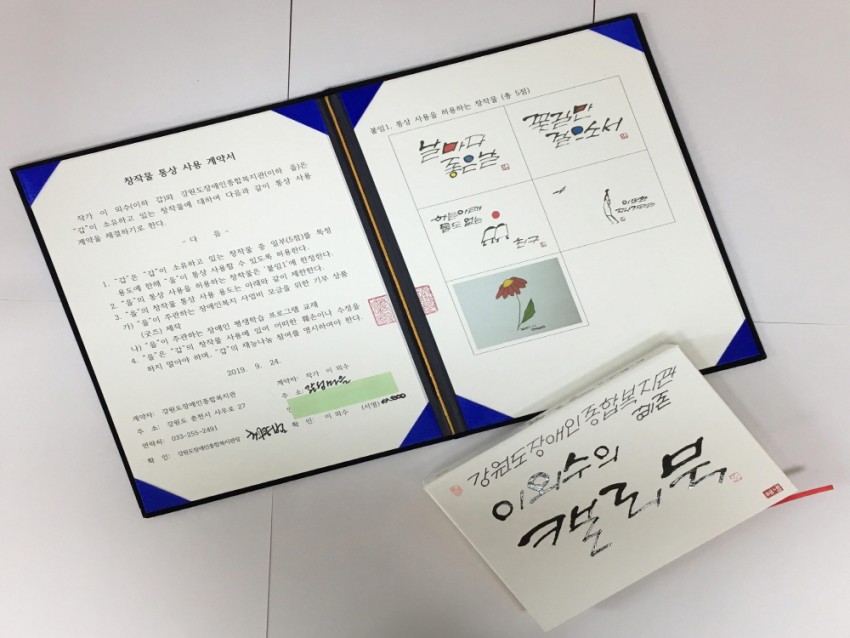 창작물 통상 사용 계약서
작가 이 외수(이하 갑)와 강원도장애인종합복지관(이하 을)은
"갑"이 소유하고 있는 창작물에 대하여 다음과 같이 통상 사용
계약을 체결하기로 한다.
- 다 음 -
1. "갑"은 "갑"이 소유하고 있는 창작물 중 일부(5점)를 특정
용도에 한해 "을"이 통상 사용할 수 있도록 허용한다.
2. "을"의 통상 사용을 허용하는 창작물은 '붙임1'에 한정한다.
3. "을"의 창작물 통상 사용 용도는 아래와 같이 제한한다.
가) "을"이 주관하는 장애인복지 사업비 모금을 위한 기부 상품
(굿즈) 제작
나) "을"이 주관하는 장애인 평생학습 프로그램 교재
4. "을"은 "갑"의 창작물 사용에 있어 어떠한 훼손이나 수정을
하지 말아야 하며, "갑"의 재능나눔 참여를 명시하여야 한다.
2019. 9. 24.
계약자: 강원도장애인종합복지관
주 소: 강원도 춘천시 사우로 27
연락처: 033-255-2491
확 인: 강원도장애인종합복지관장
계약자: 작가 이 외수
주 소: 감성마을
확 인: 이 외수 (서명)
붙임1. 통상 사용을 허용하는 창작물 (총 5점)
강원도장애인종합복지관
이외수의
캘리북